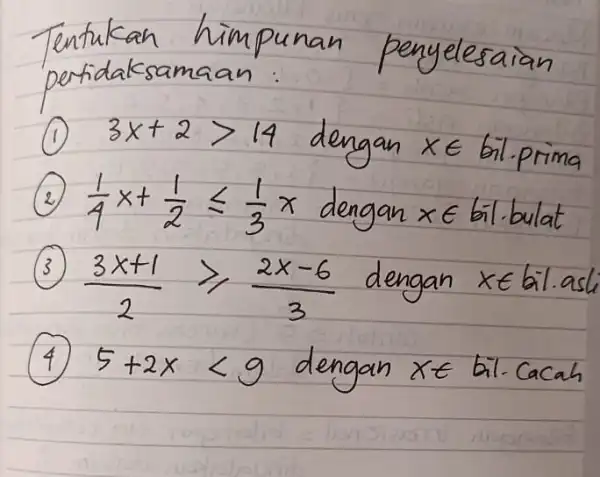 Tentukan himpunan penyelesaian
pertidaksamaan :
① 3x + 2 > 14 dengan x ∈ bil.prima
② 1/4 x + 1/2 ≤ 1/3 x dengan x ∈ bil.bulat
③ (3x+1)/2 ≥ (2x-6)/3 dengan x ∈ bil.asli
④ 5 + 2x < 9 dengan x ∈ bil-Cacah